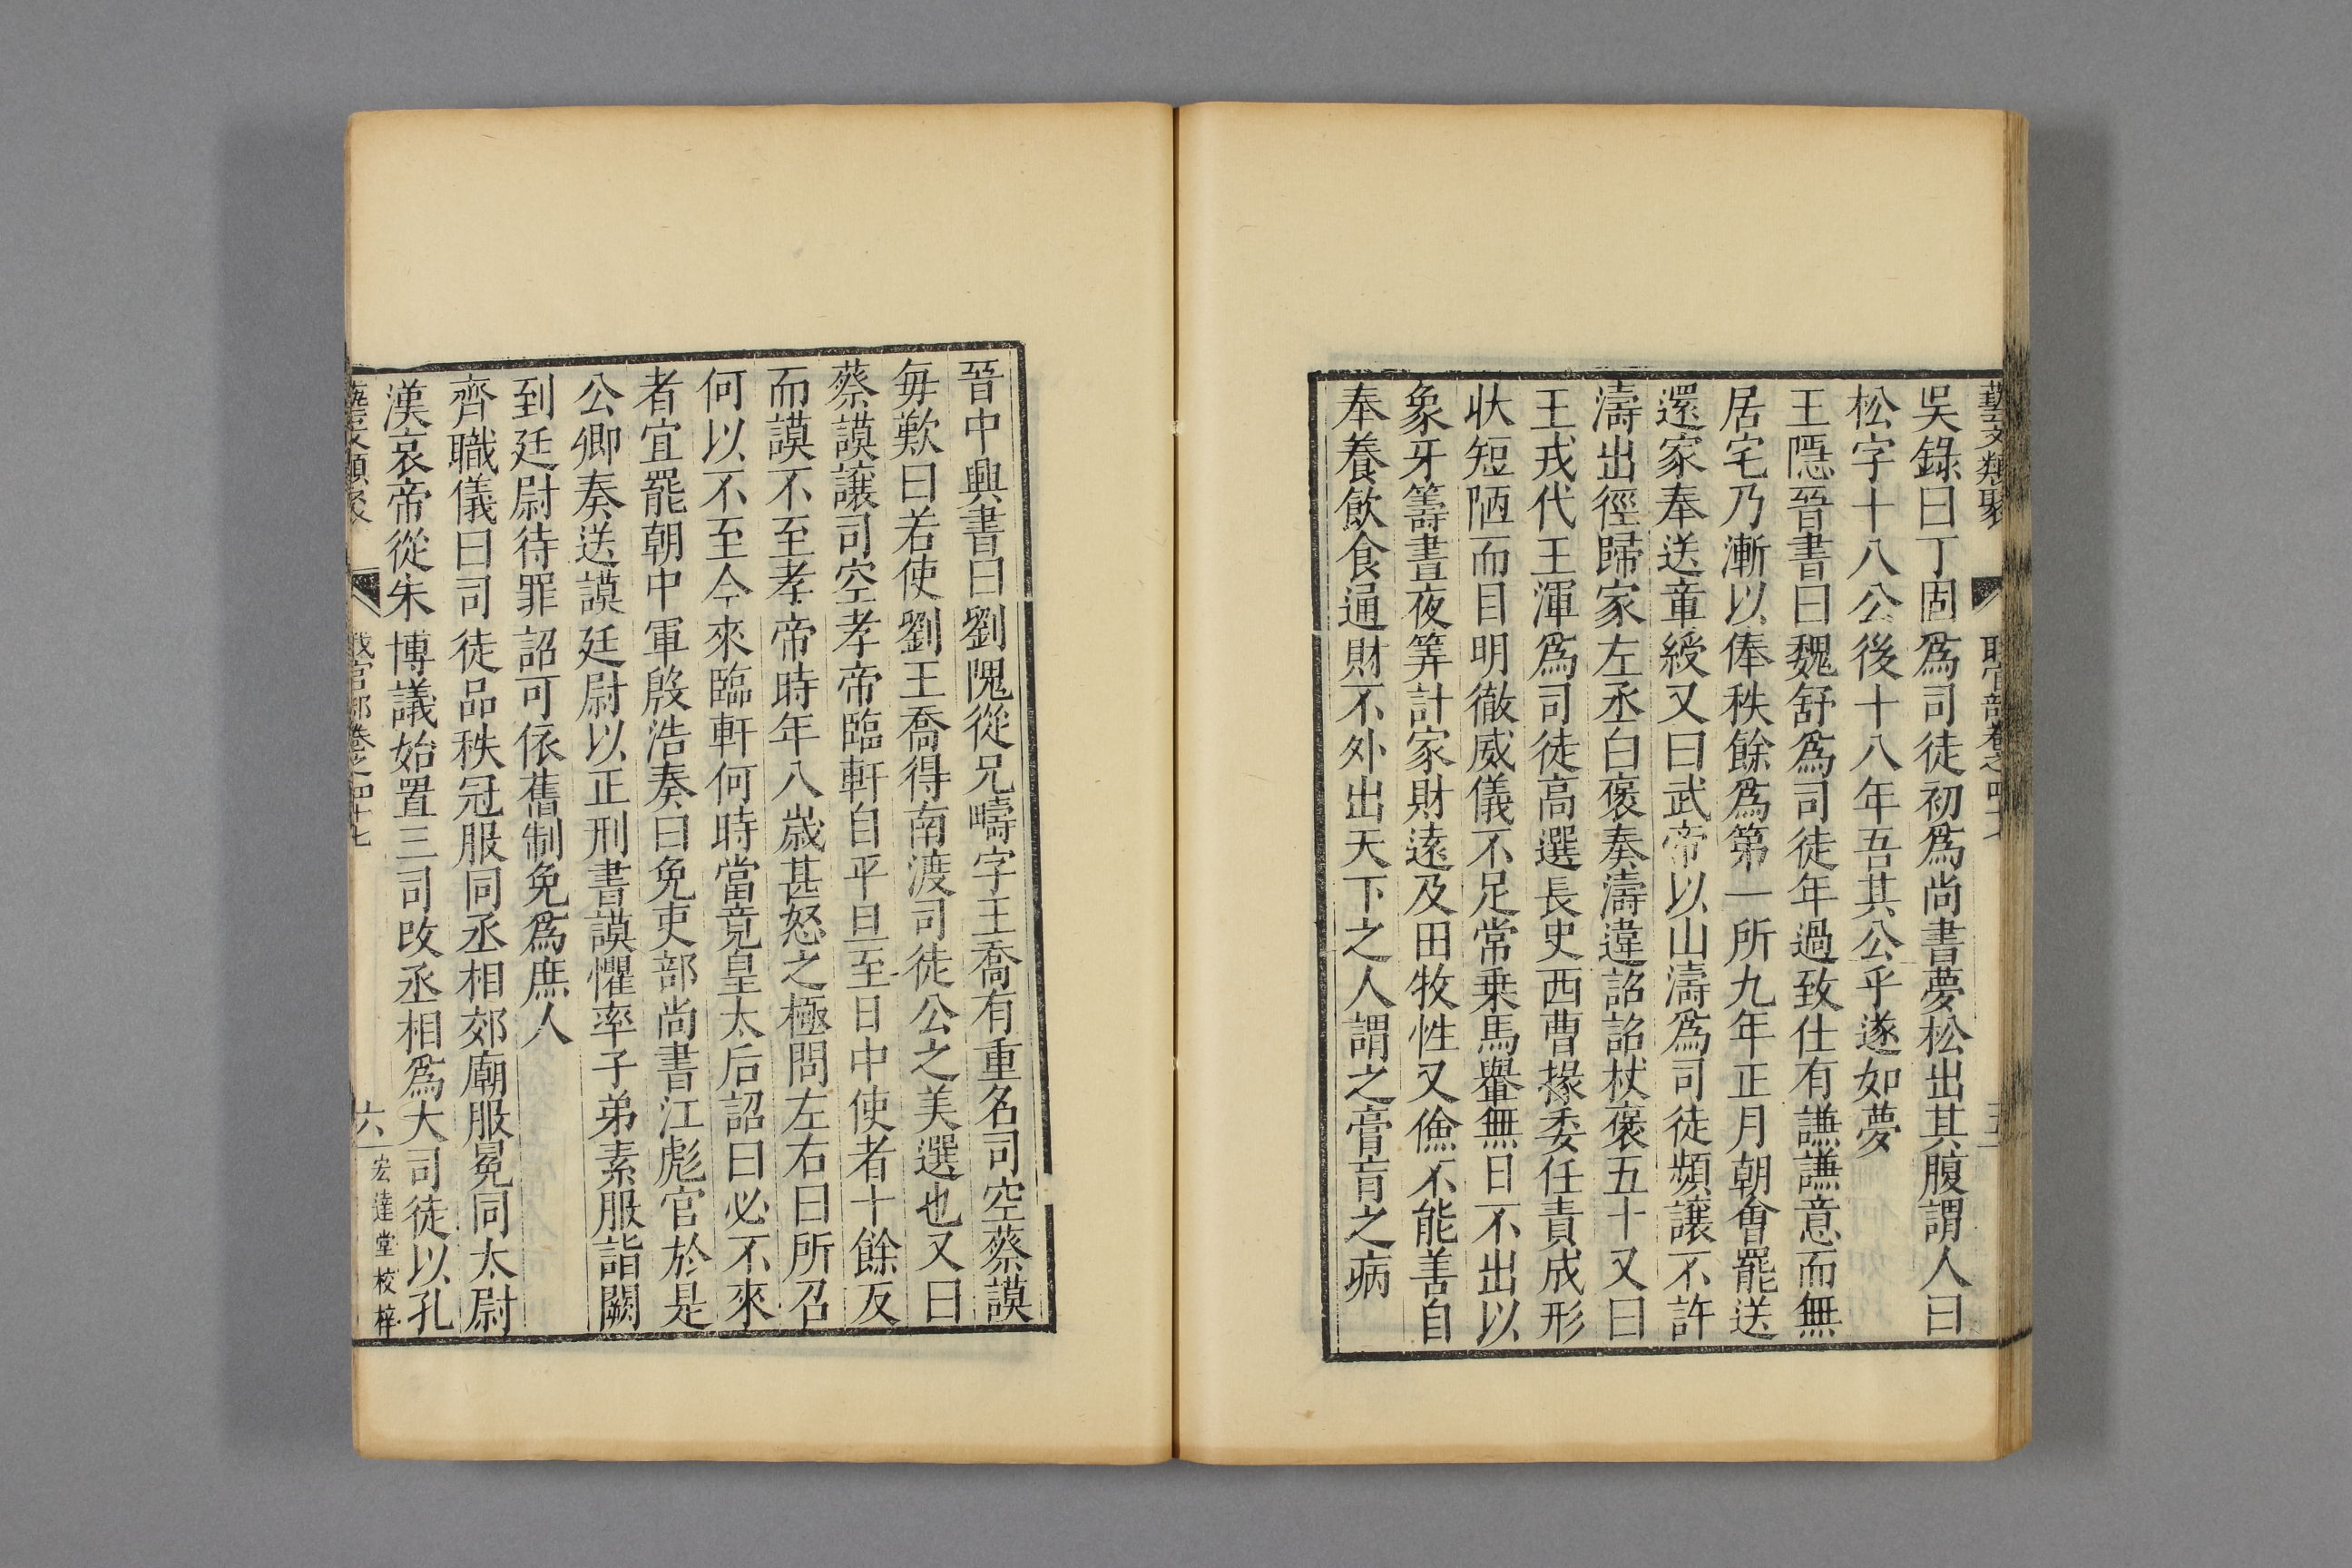 藝文類聚 職官部卷之四十七 五
吳錄曰丁固爲司徒初爲尚書夢松出其腹謂人曰
松字十八公後十八年吾其公乎遂如夢
王隱晉書曰魏舒爲司徒年過致仕有謙謙意而無
居宅乃漸以俸秩餘爲第一所九年正月朝會罷送
還家奉送章綬又曰武帝以山濤爲司徒頻讓不許
濤出徑歸家左丞白褒奏濤違詔詔杖褒五十又曰
王戎代王渾爲司徒高選長史西曹掾委任責成形
狀短陋而目明徹威儀不足常乗馬轝無日不出以
象牙籌晝夜筭計家財遠及田牧性又儉不能善自
奉養飲食通財不外出天下之人謂之膏肓之病
晉中興書曰劉隗從兄疇字王喬有重名司空蔡謨
每歎曰若使劉王喬得南渡司徒公之美選也又曰
蔡謨讓司空孝帝臨軒自平旦至日中使者十餘反
而謨不至孝帝時年八歲甚怒之極問左右曰所召
何以不至今來臨軒何時當竟皇太后詔曰必不來
者宜罷朝中軍殷浩奏曰免吏部尚書江彪官於是
公卿奏送謨廷尉以正刑書謨懼率子弟素服詣闕
到廷尉待罪詔可依舊制免爲庶人
齊職儀曰司徒品秩冠服同丞相郊廟服冕同太尉
漢哀帝從朱博議始置三司改丞相爲大司徒以孔
藝文類聚 職官部卷之四十七 六 宏達堂校梓